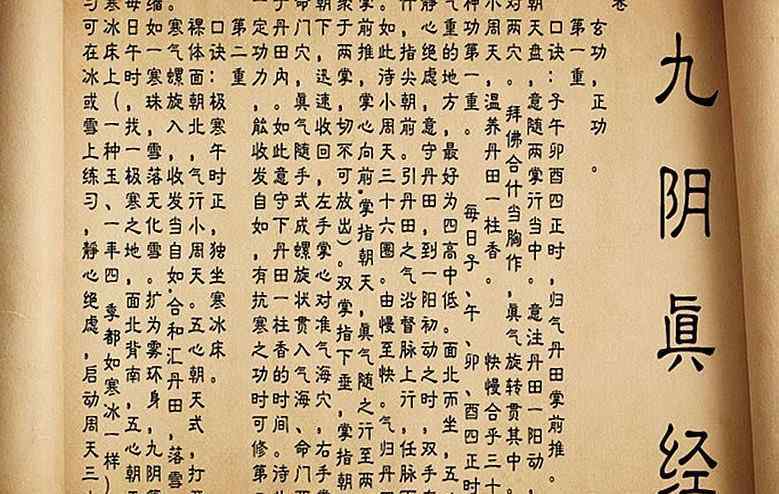 九阴眞经
玄功，正功。
第一重
口诀：子午卯酉四正时，归气丹田掌前推。
朝天盘，意随两掌行当中。意注丹田一阳动，
对两穴。拜佛合什当胸作，眞气旋转贯其中。
小周天，温养丹田一柱香。快慢合乎三十
神功第一重。每日子、午、卯、酉四正时
气重的地方，最好为四高中低。面北而坐，五
静心绝虑，意守丹田，到一阳初动之时，双手
什，指尖朝前。引丹田之气沿督脉上行，任脉
然。如此待小周天三十六圈。由慢至快。气归丹
掌前推，掌心向前，掌指朝天，眞气随之行至两
聚于两掌，切不可放出)。双掌指下垂，掌指朝
朝下，迅速收回，左手掌心对准气海穴，右手掌
命门穴，眞气随手式成螺旋状贯入气海、命门两
于丹田內。如此意守下丹田一柱香的时间。待
一定功力，能收发自如，有抗寒之功时可修第
第二重
口诀：极寒午时正，独坐寒冰床。
裸体面朝北，气行小周天。五心朝天式，打
寒气螺旋入，收发当自如。合和汇丹田，落雪
缩。如一寒珠，雪落无化雪。扩为雾环身，九阴
每日午时，找一极寒之地，面北背南，五心朝
寒冰床上（一种玉、一年四季都如寒冰一样）
习可在冰或雪上练习，静心绝虑，启动周天三